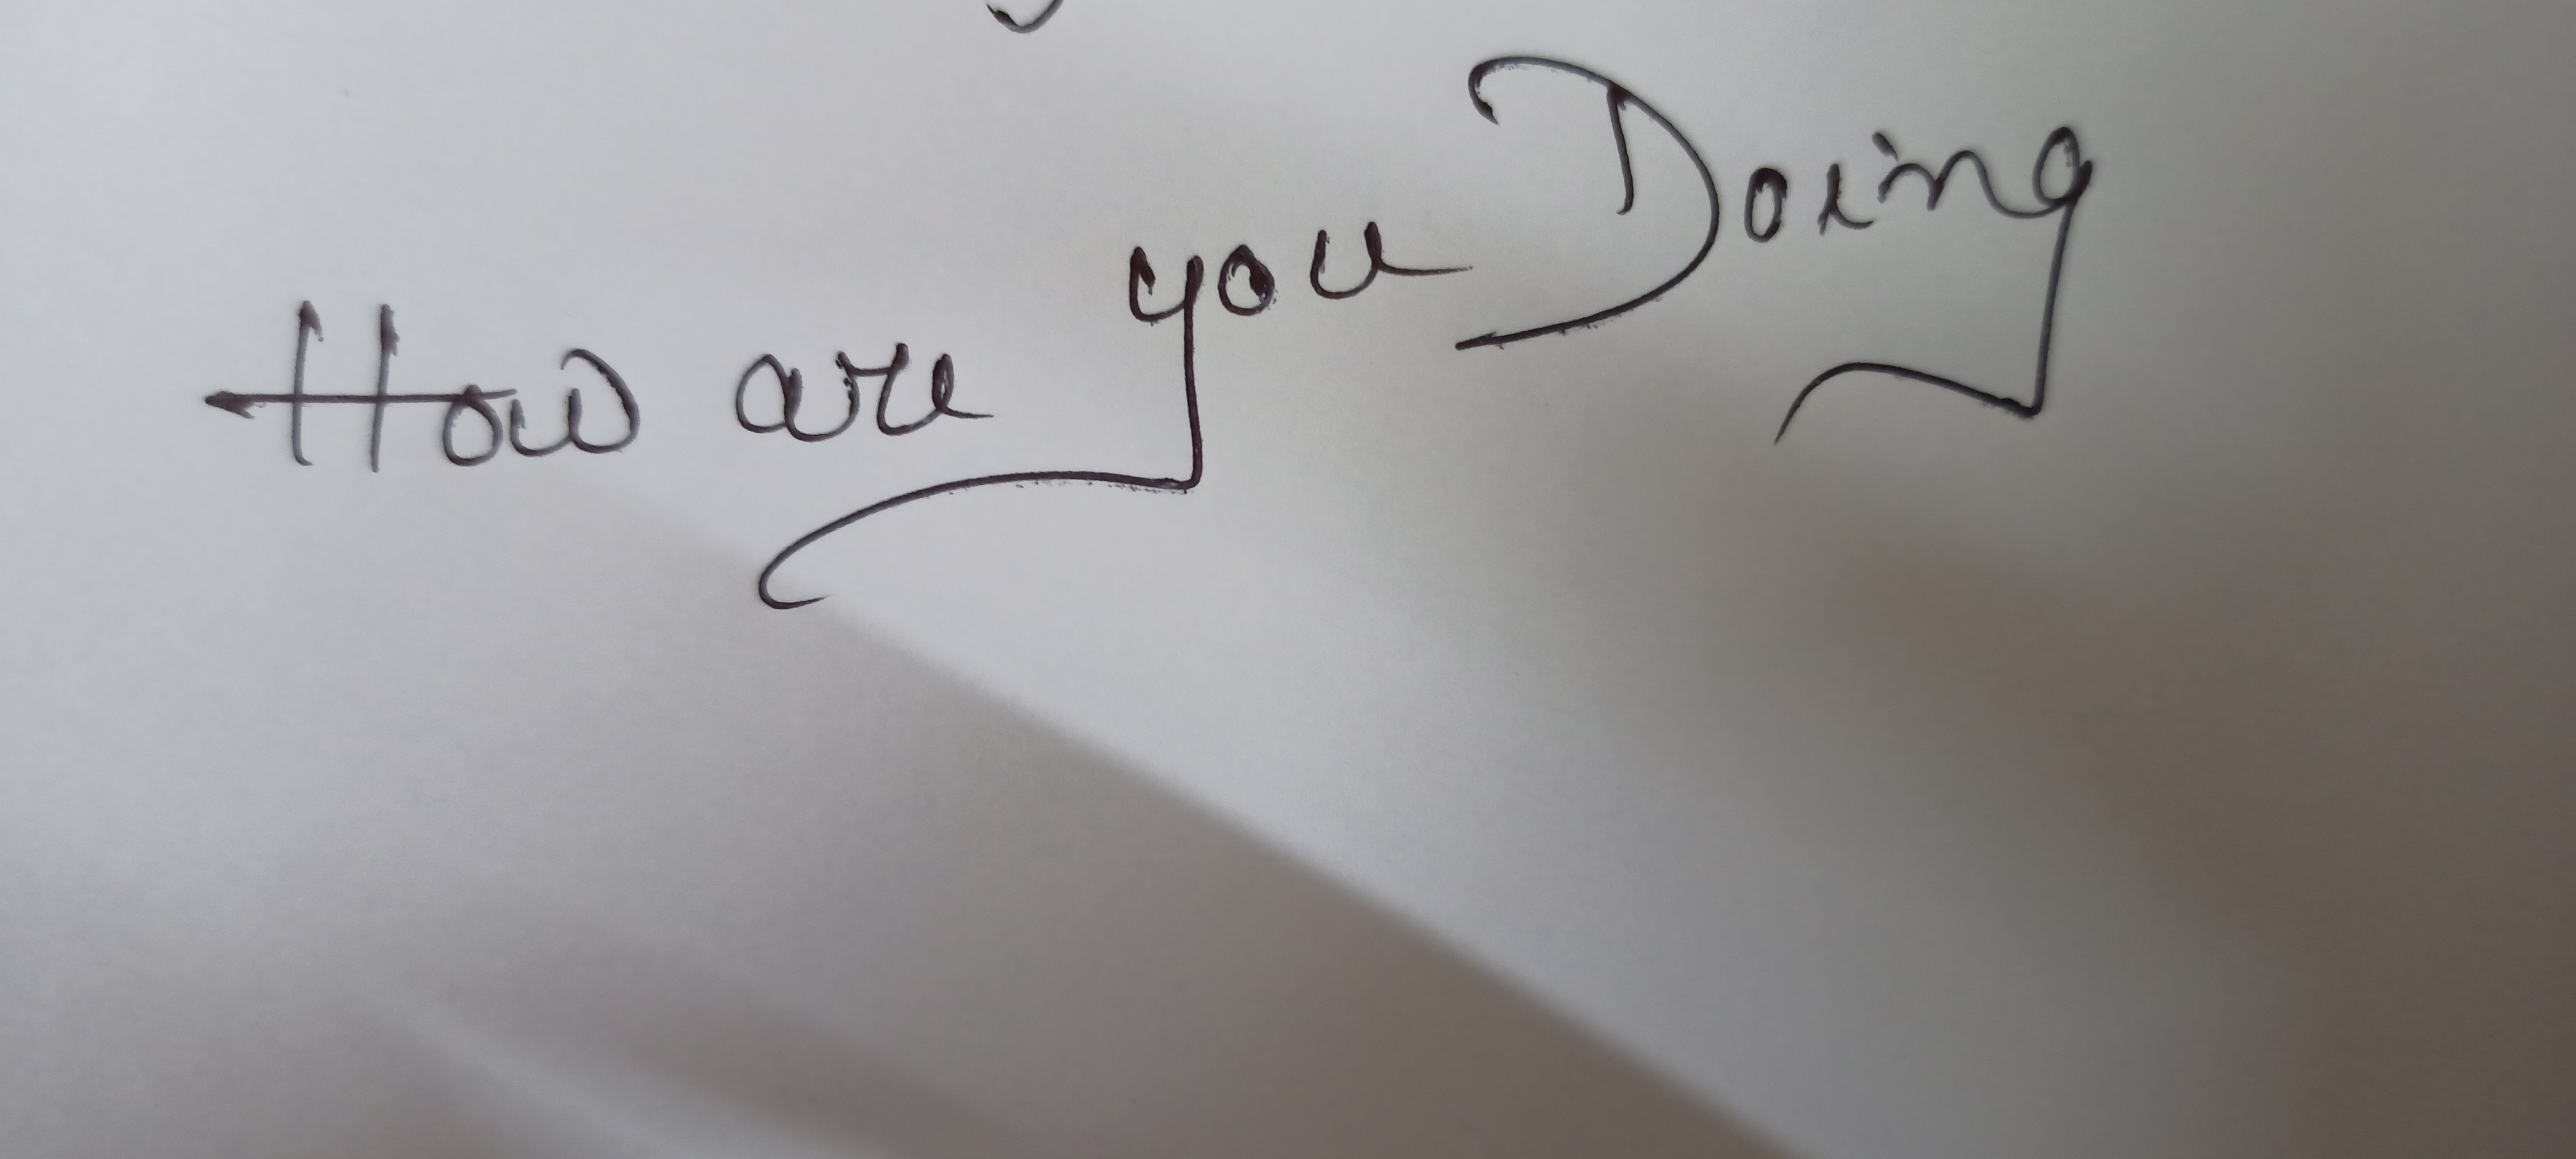 How are you Doing